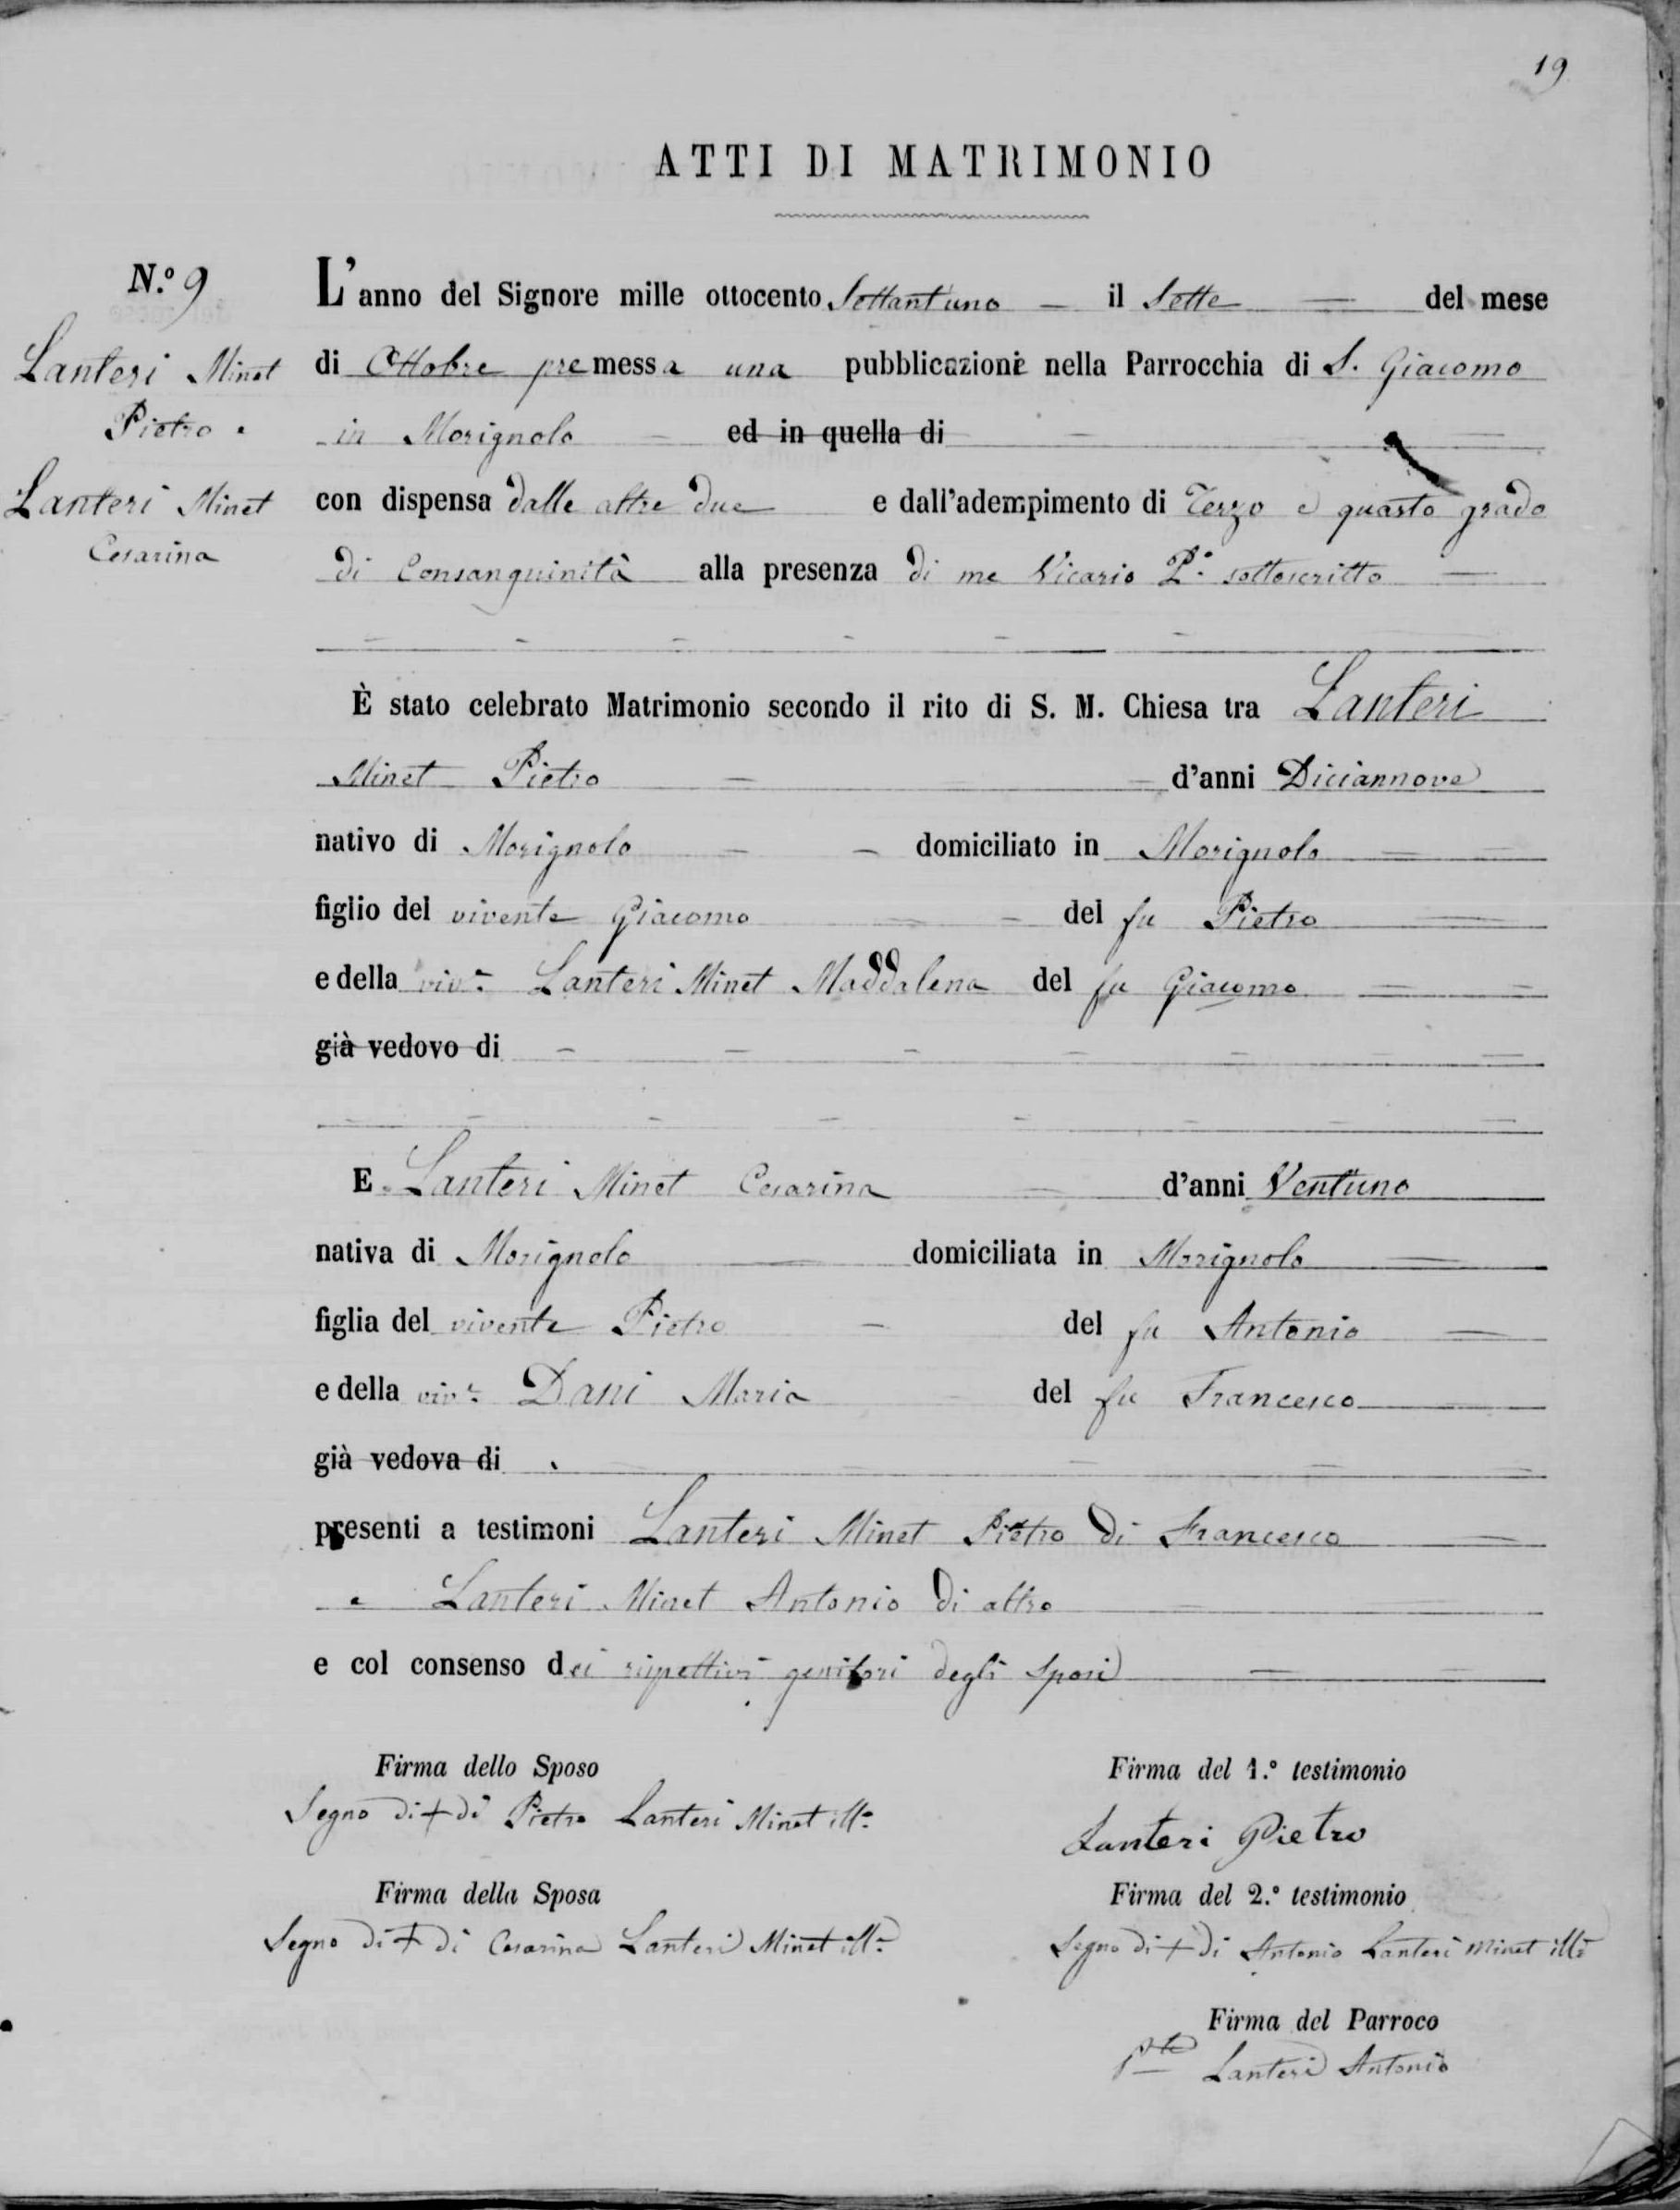 19
ATTI DI MATRIMONIO
N.º 9
Lanteri Minet
Pietro e
Lanteri Minet
Cesarina
L'anno del Signore mille ottocento Settant'uno — il Sette — del mese
di Ottobre premessa una pubblicazione nella Parrocchia di S. Giacomo
in Morignolo — ed in quella di —
con dispensa dalle altre due e dall'adempimento di Terzo e quarto grado
di Consanguinità alla presenza di me Vicario P.º sottoscritto —
È stato celebrato Matrimonio secondo il rito di S. M. Chiesa tra Lanteri
Minet Pietro — d'anni Diciannove
nativo di Morignolo — domiciliato in Morignolo —
figlio del vivente Giacomo — del fu Pietro —
e della viv.e Lanteri Minet Maddalena del fu Giacomo —
già vedovo di —
E Lanteri Minet Cesarina — d'anni Ventuno
nativa di Morignolo — domiciliata in Morignolo —
figlia del vivente Pietro — del fu Antonio —
e della viv.e Dani Maria del fu Francesco —
già vedova di —
presenti a testimoni Lanteri Minet Pietro di Francesco —
e Lanteri Minet Antonio di altro —
e col consenso dei rispettivi genitori degli Sposi —
Firma dello Sposo
Segno di + di Pietro Lanteri Minet ill.o
Firma della Sposa
Segno di + di Cesarina Lanteri Minet ill.a
Firma del 1.º testimonio
Lanteri Pietro
Firma del 2.º testimonio
Segno di + di Antonio Lanteri Minet ill.o
Firma del Parroco
P.te Lanteri Antonio